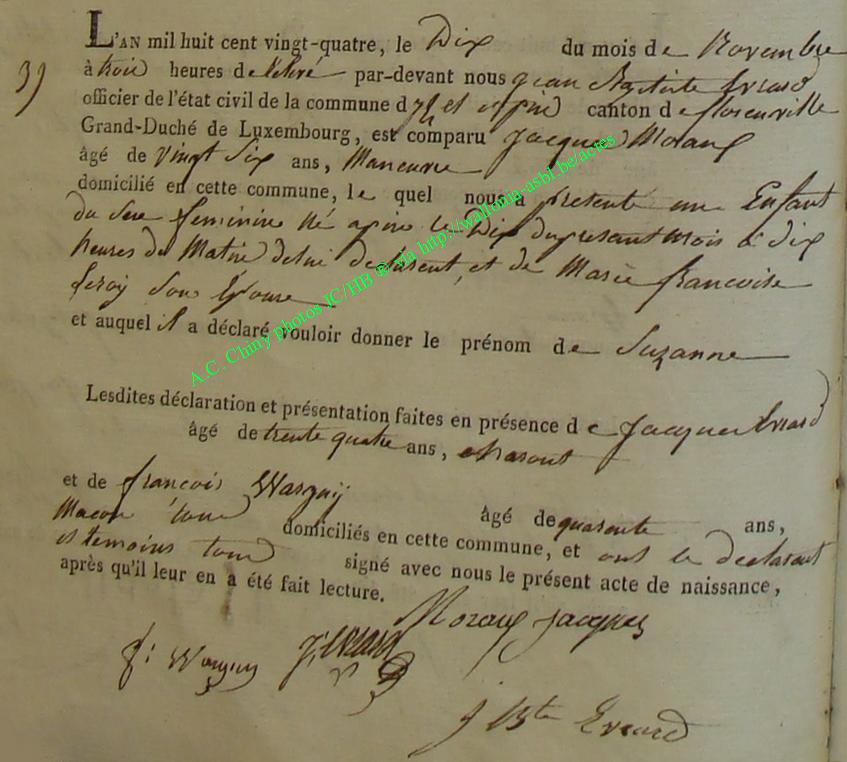 L'AN mil huit cent vingt-quatre, le Dix du mois de Novembre
39
à trois heures de par-devant nous jean Baptiste Evrard
officier de l'état civil de la commune d canton de florenville
Grand-Duché de Luxembourg, est comparu Jacques Moraux
âgé de vingt Six ans, Maneuvre
domicilié en cette commune, le quel nous a présenté une Enfant
du sexe feminine Né le Dix du présent mois à dix
heures du Matin de lui declarent, et de Marie françoise
Son Epouse
et auquel il a déclaré vouloir donner le prénom de Suzanne
Lesdites déclaration et présentation faites en présence de Jacques Evrard
âgé de trente quatre ans,
et de francois Warguij âgé de quarente ans,
Macon tous domiciliés en cette commune, et ont le declarant
et temoins tous signé avec nous le présent acte de naissance,
après qu'il leur en a été fait lecture.
Moraux jacques
f: J: Evrard
j Bte Evrard
A.C. Chiny photos JC/HB ® via http://wallonia-asbl.be/actes